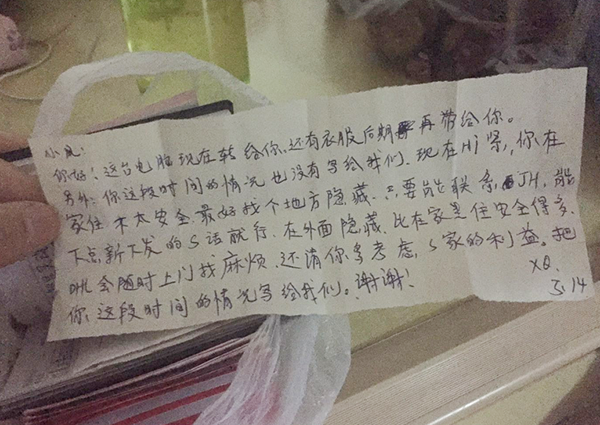 小凤:
你好!这台电脑现在转给你、还有衣服后期再带给你。
另外:你这段时间的情况也没有写给我们、现在Hj紧,你在
家住不太安全、最好找个地方隐藏、只要能联系JH、能
下点新下发的S话就行、在外面隐藏、比在家是住安全得多、
会随时上门找麻烦、还请你多考虑,S家的利益。把
你这段时间的情况写给我们。谢谢!
XQ.
3.14